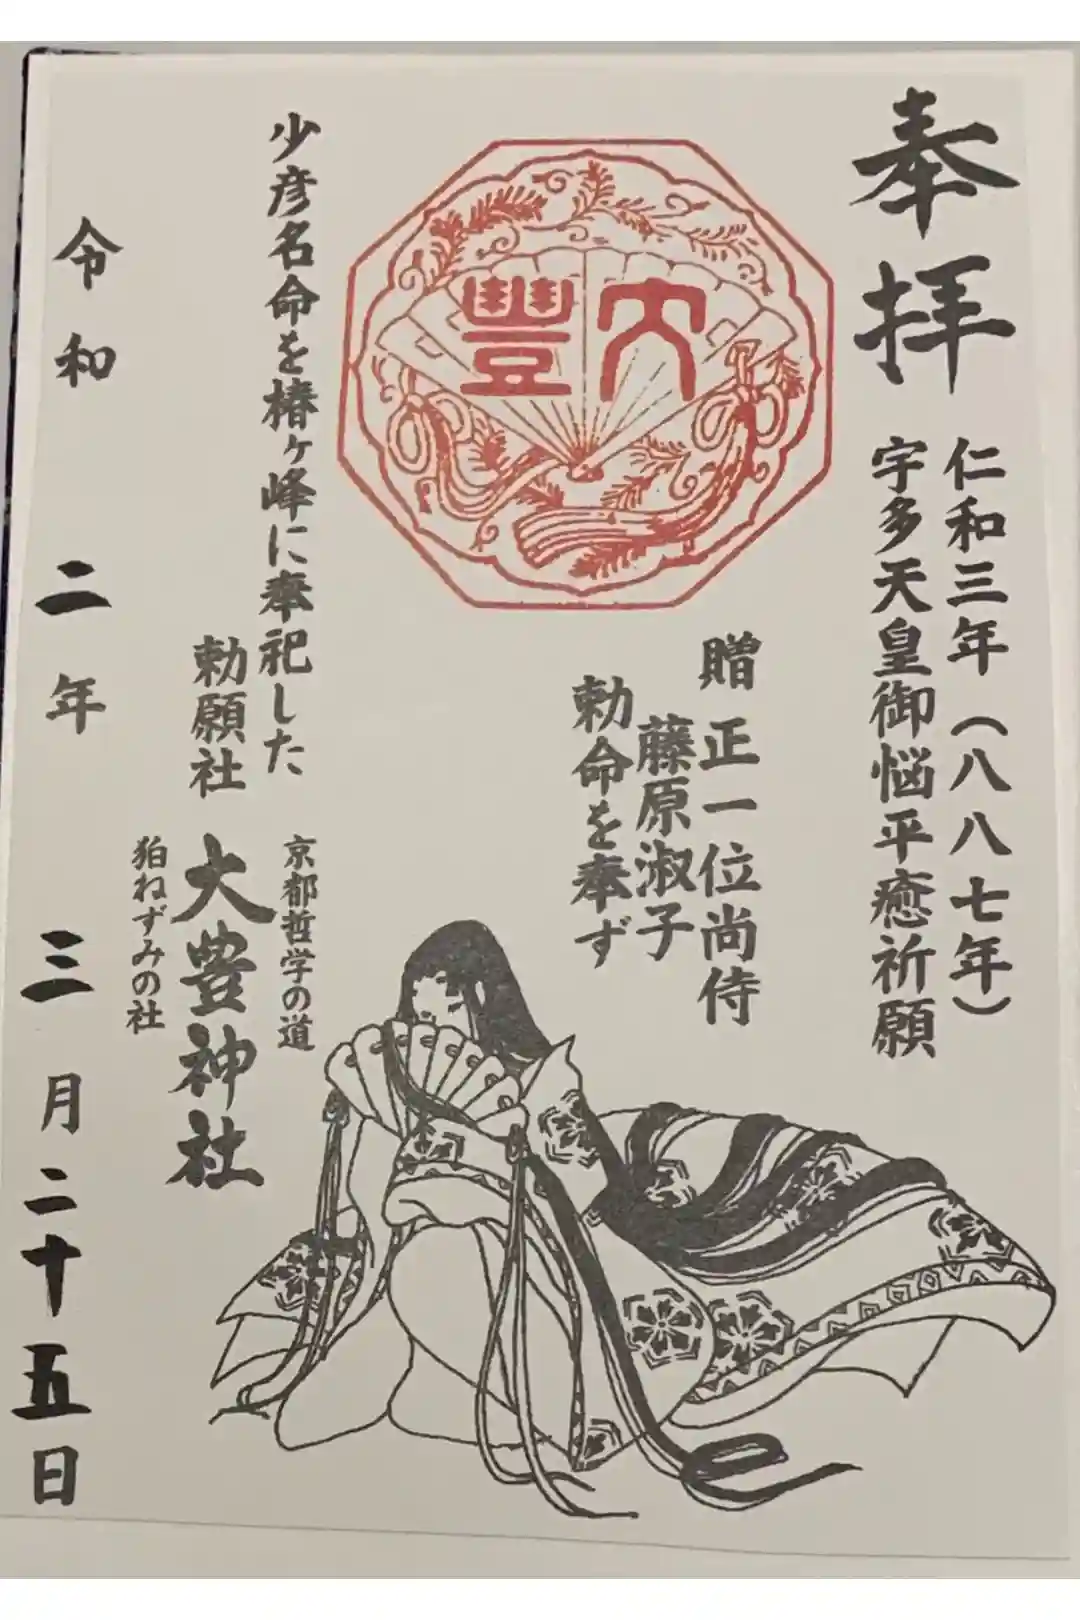 奉拝
仁和三年（八八七年）
宇多天皇御悩平癒祈願
大豐
贈 正一位尚侍
藤原淑子
勅命を奉ず
少彦名命を椿ヶ峰に奉祀した
勅願社
京都哲学の道
大豊神社
狛ねずみの社
令和二年三月二十五日